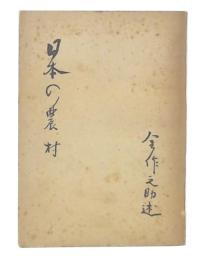 日本の農村
全作之助述